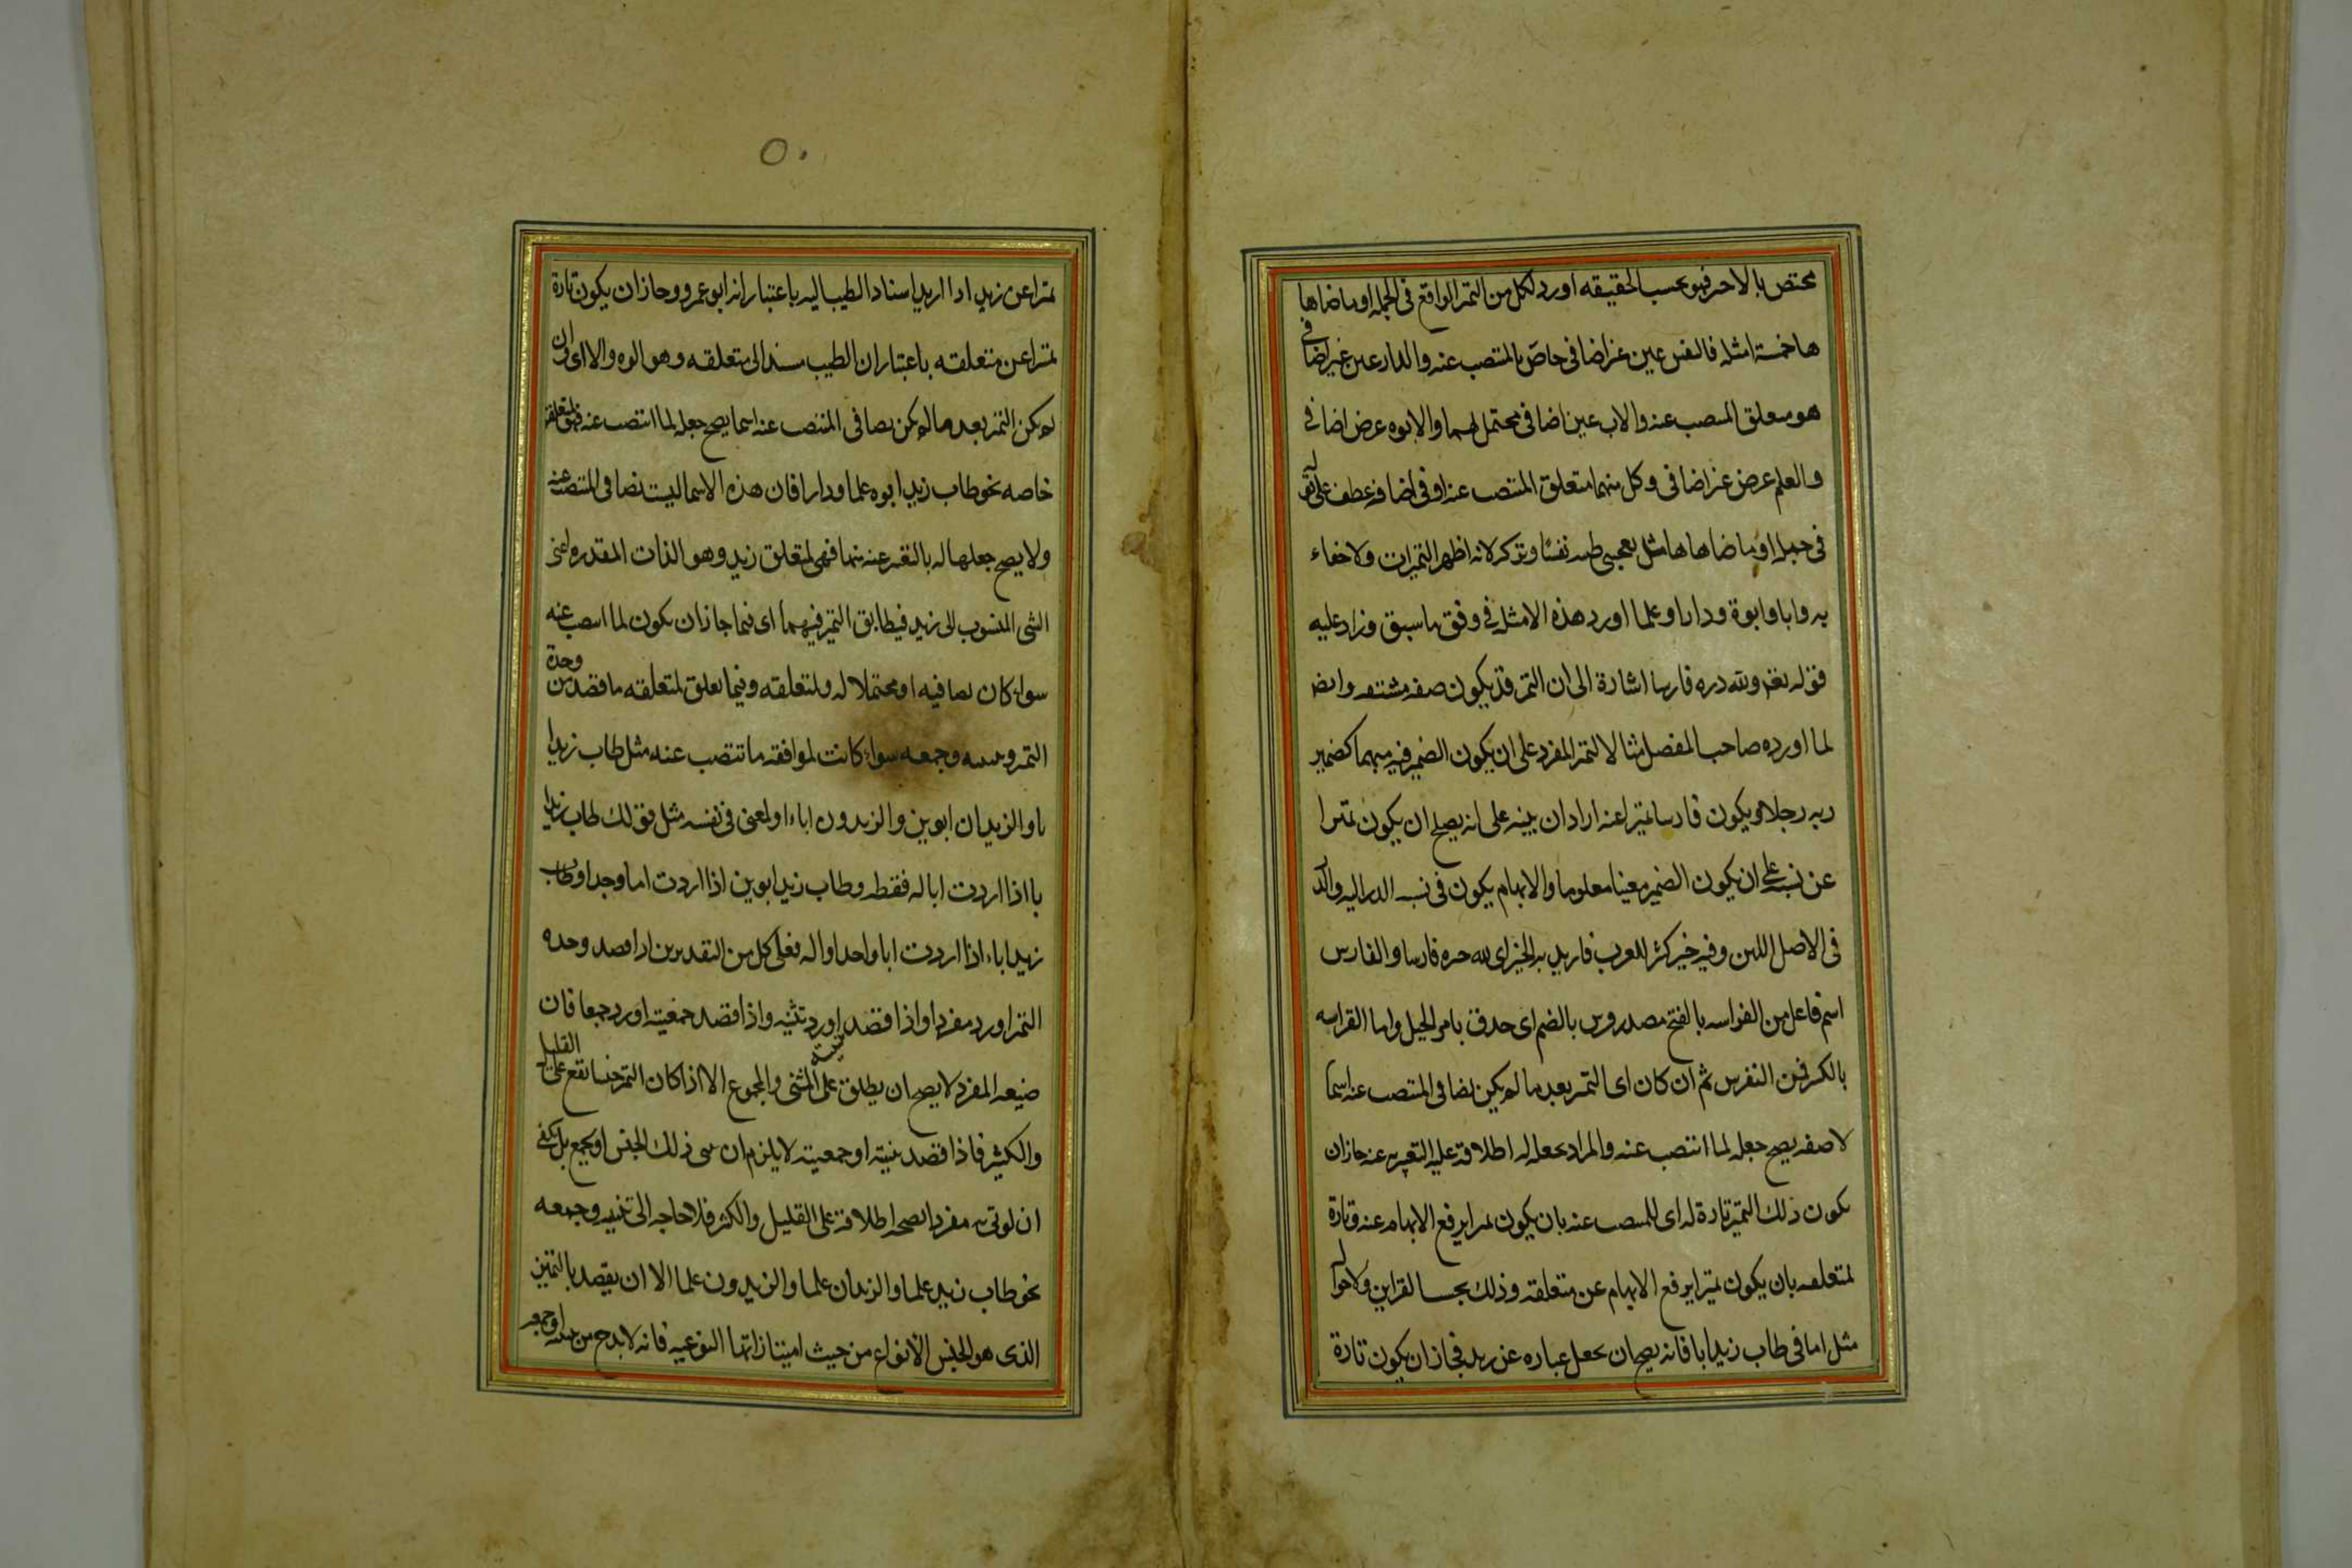 مختص بالاخر فهو بحسب الحقيقه اورد لكل من التمز الواقع فى الجمله او ماضاها
ها خمسة امثله فالنفس عين غير اضافى خاص بالمنتصب عنه والدار عين غير اضافى
هو متعلق المنتصب عنه والاب عين اضافى محتمل لهما والابوه عرض اضافى
والعلم عرض غير اضافى وكل منهما متعلق المنتصب عنه او فى اضافه عطف على قوله
فى جمله او ما ضاهاها مثل يعجبنى طيبه نفسًا وتركه لانه اظهر التميزات ولا خفاء
به وابا وابوة ودارا وعلما اورد هذه الامثله فى وفق ما سبق وزاد عليه
قوله نعم ولله دره فارسا اشارة الى ان التمز قد يكون صفه مشتقه وايضا
لما اورده صاحب المفصل مثالا لتمز المفرد على ان يكون الضمير فيه مبهما كضمير
ربه رجلا ويكون فارسا تميزا عنه اراد ان يبنه على انه يصلح ان يكون تمزا
عن نسبه على ان يكون الضمير معينا معلوما والابهام يكون فى نسبه الدر اليه والدر
فى الاصل اللبن وفيه خير كثير للعرب فاريد به الخير اى لله خره فارسا والفارس
اسم فاعل من الفراسه بالفتح مصدر فرس بالضم اى حذق بامر الخيل واما الفراسه
بالكسر فمن التفرس ثم ان كان اى التمز بعد ما لم يكن نصا فى المنتصب عنه اسما
لا صفه يصح جعله لما انتصب عنه والمراد بجعله له اطلاقه عليه والتعبير به عنه جاز ان
يكون ذلك التميز تارة له اى للمنتصب عنه بان يكون تمزا يرفع الابهام عنه وتارة
لمتعلقه بان يكون تميزا يرفع الابهام عن متعلقه وذلك بحسب القراين والاحوال
مثل ابا فى طاب زيد ابا فانه يصح ان يجعل عباره عن زيد فجاز ان يكون تارة
٥٠
تمزا عن زيد اذا اريد اسناد الطيب اليه باعتبار انه ابو عمرو وجاز ان يكون تارة
تمزا عن متعلقه باعتبار ان الطيب مسند الى متعلقه وهو ابوه والا اى وان
لم يكن التمز بعد ما لم يكن نصا فى المنتصب عنه اسما يصح جعله لما انتصب عنه فهو لمتعلقه
خاصه نحو طاب زيد ابوه علما ودارا فان هذه الاسما ليست نصا فى المنتصب عنه
ولا يصح جعلها له بالتعبير عنه بها فهى لمتعلق زيد وهو الذات المقدره اعنى
الشى المنسوب الى زيد فيطابق التمز فيهما اى فيما جاز ان يكون لما انتصب عنه
سواء كان نصا فيه او محتملا له ولمتعلقه وفيما تعلق لمتعلقه ما قصد من وحدة
التمز وتثنيته وجمعه سواء كانت لموافقه ما تنتصب عنه مثل طاب زيد ا
با والزيدان ابوين والزيدون اباء او لمعنى فى نفسه مثل قولك طاب زيد ا
با اذا اردت ابا له فقط وطاب زيد ابوين اذا اردت اما وجدا وطاب
زيد اباء اذا اردت ابا واحدا واله فعلى كل من التقديرين اذا قصد وحده
التمز اورد مفردا واذا قصد تثنيته اورد تثنيه واذا قصد جمعيته اورد جمعا فان
صيغه المفرد لا يصح ان يطلق على المثنى والمجموع الا اذا كان التمز جنسا يقع على القليل
والكثير فاذا قصد تثنيته او جمعيته لا يلزم ان يثنى ذلك الجنس او يجمع بل يكفى
ان يوتى به مفردا لصحه اطلاقه على القليل والكثير فلا حاجه الى تثنيه وجمعه
نحو طاب زيد علما والزيدان علما والزيدون علما الا ان يقصد بالتمييز
الذى هو الجنس الانواع من حيث امتيازاتها النوعيه فانه لا بد ح من تثنيته او جمعه